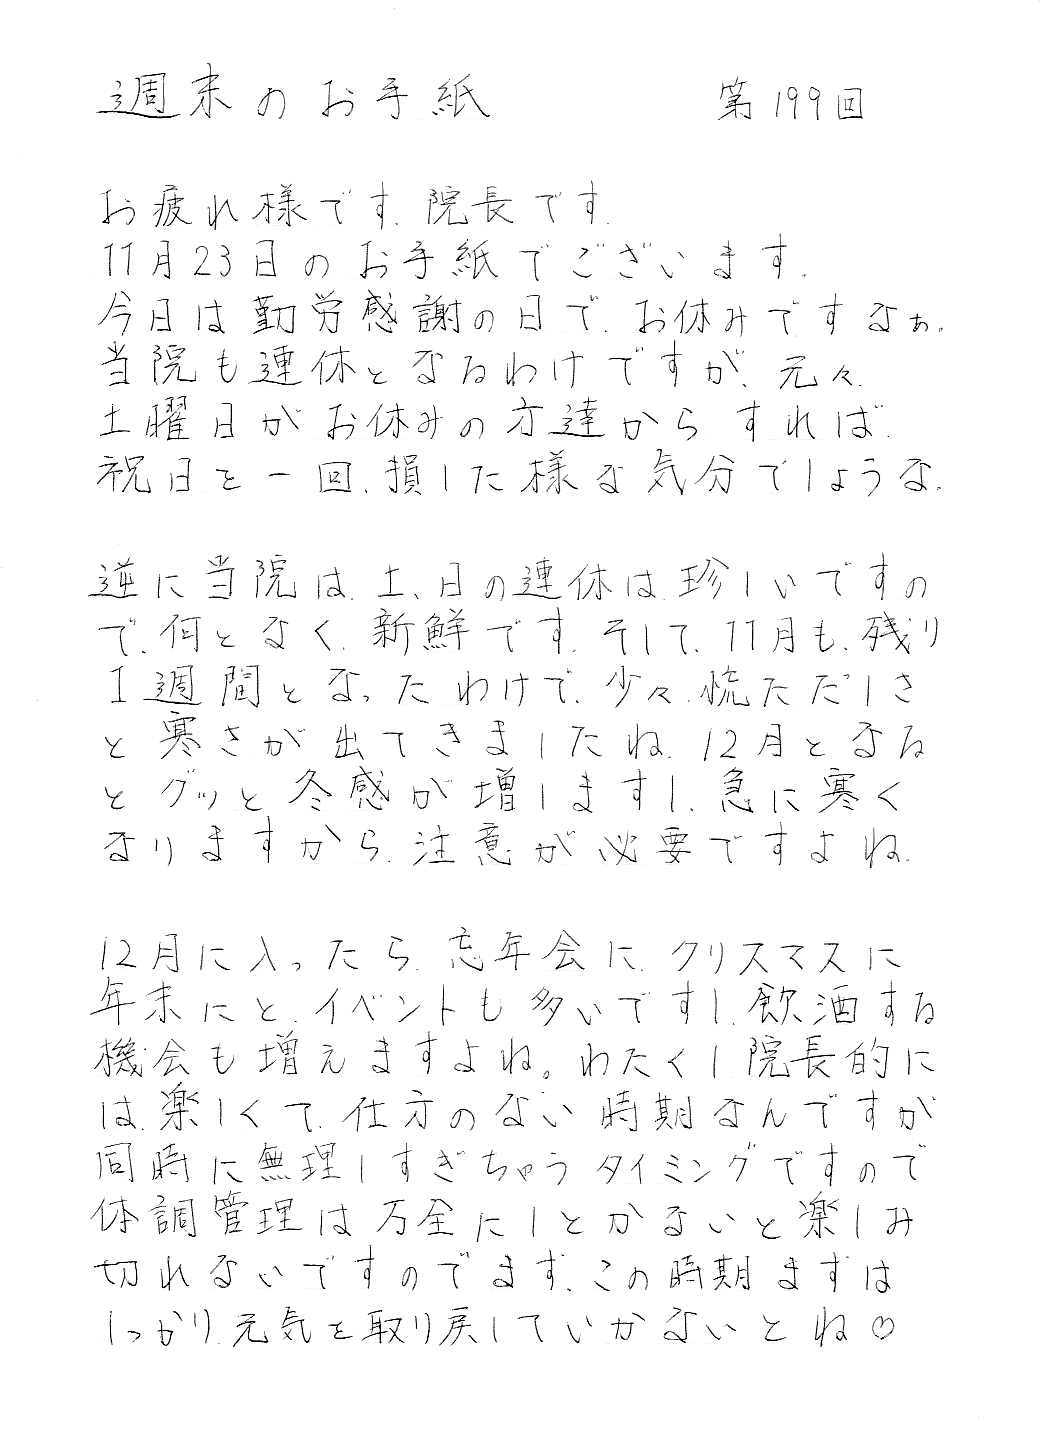 週末のお手紙 第199回
お疲れ様です.院長です.
11月23日のお手紙でございます.
今日は勤労感謝の日で.お休みですなぁ.
当院も連休となるわけですが、元々.
土曜日がお休みの方達からすれば.
祝日と一回.損した様な気分でしょうな.
逆に当院は.土、日の連休は.珍しいですの
で.何となく.新鮮です.そして.11月も.残り
1週間となったわけで.少々.慌ただしさ
と寒さが出てきましたね.12月となる
とグッと冬感が増しますし.急に寒く
なりますから.注意が必要ですよね.
12月に入ったら.忘年会に.クリスマスに
年末にと.イベントも多いですし.飲酒する
機会も増えますよね。わたくし院長的に
は.楽しくて.仕方のない時期なんですが
同時に無理しすぎちゃうタイミングですので
体調管理は万全にしとかないと楽しみ
切れないですのでます.この時期まずは
しっかり.元気を取り戻していかないとね♡